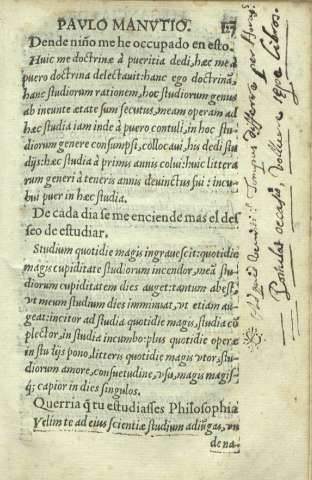 PAVLO MANVTIO.
Dende niño me he occupado en esto.
Huic me doctrinæ à pueritia dedi, hæc me à
puero doctrina delectauit: hanc ego doctrinā,
hanc studiorum rationem, hoc studiorum genus
ab ineunte ætate sum secutus, meam operam ad
hæc studia iam inde à puero contuli, in hoc stu-
diorum genere consumpsi, collocaui, his dedi stu
dijs: hæc studia à primis annis colui: huic littera
rum generi à teneris annis deuinctus fui: incu-
bui puer in hæc studia.
De cada dia se me enciende mas el des
seo de estudiar.
Studium quotidie magis ingrauescit: quotidie
magis cupiditate studiorum incendor, meā stu-
diorum cupiditatem dies auget: tantum abest,
vt meum studium dies imminuat, vt etiam au-
geat: incitor ad studia quotidie magis, studia cō
plector, in studia incumbo: plus quotidie operæ
in studijs pono, litteris quotidie magis vtor, stu-
diorum amore, consuetudine, vsu, magis magis
q; capior in dies singulos.
Querria q̃ tu estudiasses Philosophia
Velim te ad eius scientiæ studium adiūgas, vn
de na-